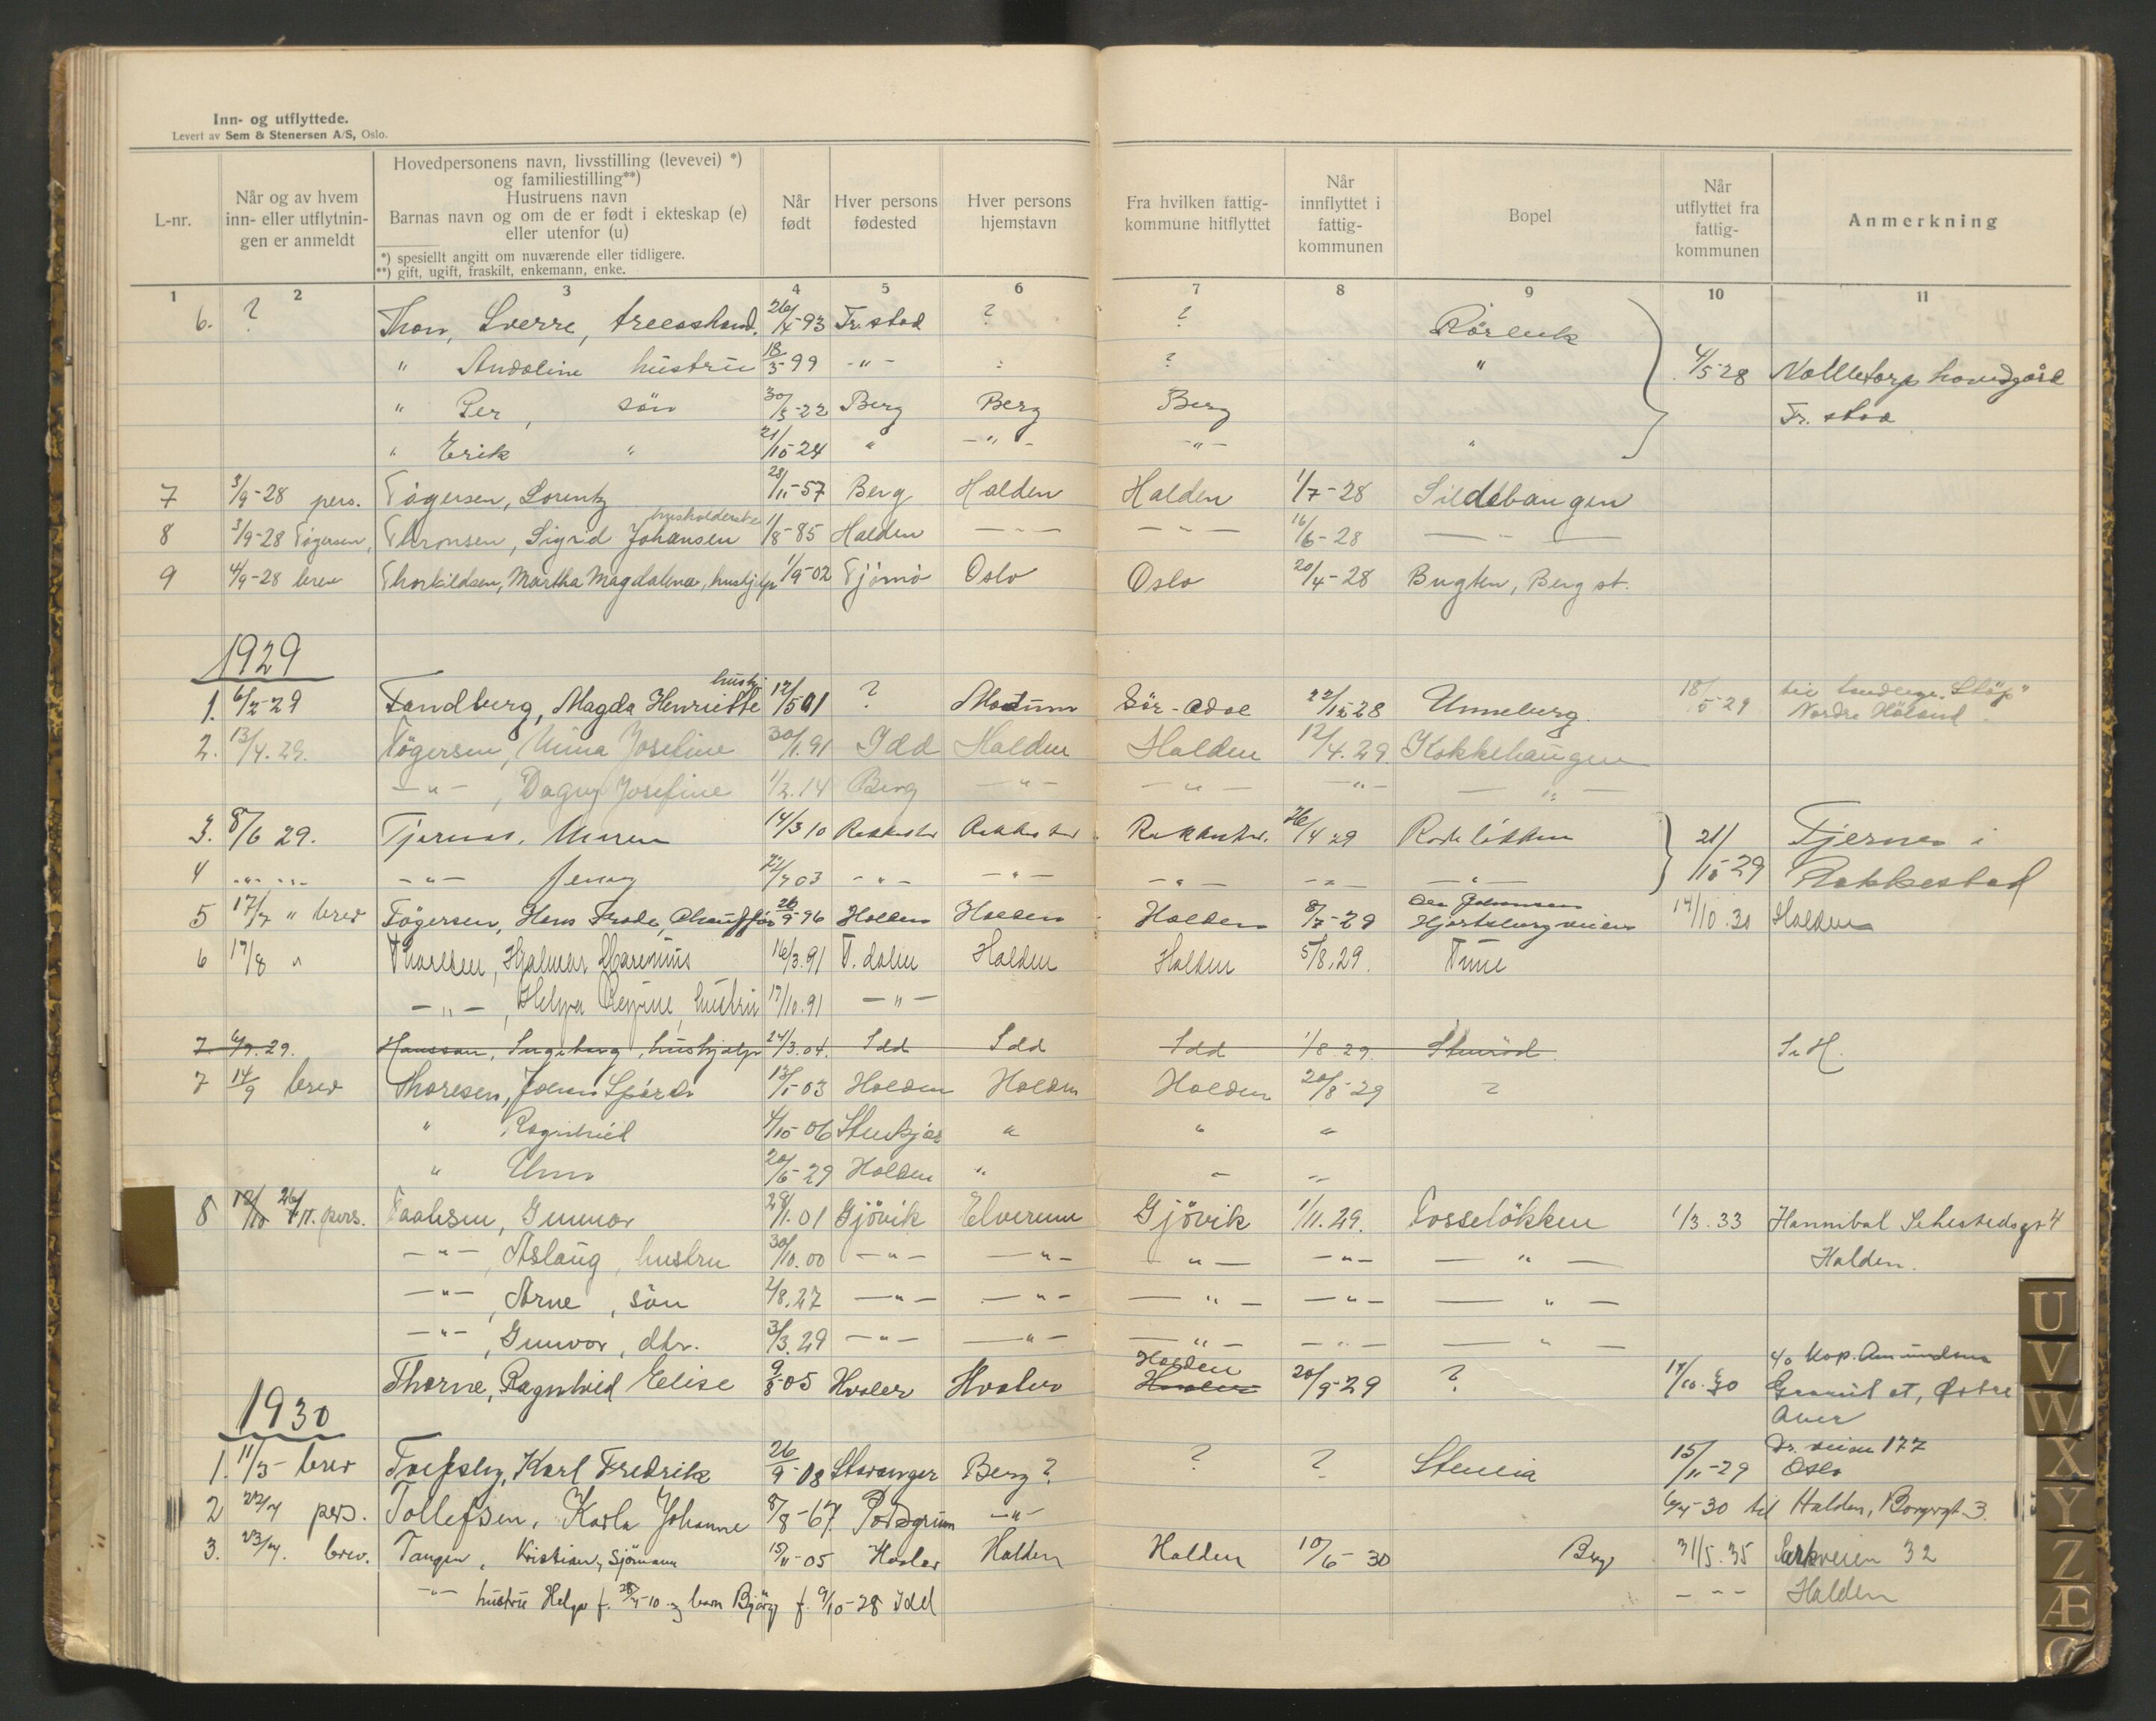 Inn- og utflyttede.
Levert av Sem & Stenersen A/S, Oslo.
L-nr.
Når og av hvem
inn- eller utflytnin-
gen er anmeldt
Hovedpersonens navn, livsstilling (levevei) *)
og familiestilling**)
Hustruens navn
Barnas navn og om de er født i ekteskap (e)
eller utenfor (u)
*) spesiellt angitt om nuværende eller tidligere.
**) gift, ugift, fraskilt, enkemann, enke.
Når
født
Hver persons
fødested
Hver persons
hjemstavn
Fra hvilken fattig-
kommune hitflyttet
Når
innflyttet i
fattig-
kommunen
Bopel
Når
utflyttet fra
fattig-
kommunen
Anmerkning
1 2 3 4 5 6 7 8 9 10 11
6. ? Thon, Sverre, 26/4-93 Fr.stad ? ?
" Andoline hustru 18/5-99 -"- ? " 4/5-28 hovedgård
" Per, sön 30/5-22 Berg Berg Berg Fr. stad
" Erik " 21/10-24 " -"- -"- "
7 3/9-28 pers. Tögersen, Lorentz 28/11-57 Berg Halden Halden 1/7-28 Sildebaugen
husholderske
8 3/9-28 Tögersen, Thronsen, Sigrid Johansen 1/8-85 Halden -"- -"- 16/6-28 -"-
9 4/9-28 brev Thorkildsen, Martha Magdalena, hushjelp 1/9-02 Tjömö Oslo Oslo 20/4-28 Bugten, Berg st.
1929
hushj.
1. 6/2-29 Tandberg, Magda Henriette 12/5 01 ? Modum 22/12 28 Unneberg 18/5-29
Nordre Höland
2. 13/4. 29. Tögersen, Mina Josefine 30/1.91 Idd Halden Halden 12/4.29. Kokkehaugen
-"-, Dagny Josefine 1/2.14 Berg -"- -"- -"- -"-
3. 8/6 29. Tjernes, Maren 14/3 10 Rakkestad Rakkestad Rakkestad 26/4 29 21/10-29 Tjernes i
4 -"- -"- -"- Jenny 03 -"- -"- -"- -"- -"- Rakkestad
5 17/7 " brev Tögersen, Hans Frode, Chauffør 26/9-96 Halden Halden Halden 8/7-29 Hjortsbergveien 14/10.30 Halden
6 17/8 " Thoresen, Hjalmar Marenius 16/3.91 T.dalen Halden Halden 5/8.29. Tune
-"-, Helga Regine, hustru 17/10.91 -"-
7 6/9. 29. Hansson, Ingeborg, hushjelp 24/3.04. Idd Idd Idd 1/8.29. Stenröd Se H.
7 14/9 brev Thoresen, Johan 13/5-03 Halden Halden Halden 20/8-29 ?
" Ragnhild 4/10-06 " " "
" Unn 20/6-29 Halden " " "
8 26/11. pers. Taalesen, Gunnar 29/1.01 Gjövik Elverum Gjövik 1/11.29. Fosselökken 1/3.33 Hannibal Sehestedsgt 4
-"-, Aslaug, hustru 30/10.00 -"- -"- -"- -"- -"- Halden.
-"-, Arne, sön 2/8.27 -"- -"- -"- -"- -"-
-"-, Gunvor, dtr. 3/3.29 -"- -"- -"- -"- -"-
Halden c/o Kap. Amundsen
Thorne, Ragnhild Elise 9/8-05 Hvaler Hvaler Hvaler 20/9-29 ? 17/10.30 Østre
Aker
1930
1. 11/3- brev Karl Fredrik 26/9-08 Stavanger Berg? ? ? Stenlia 15/11-29 Dr. veien 177
Oslo
2 22/4 pers. Tollefsen, Karla Johanne 8/8-67 Porsgrunn -"- -30 til Halden, Borgergt. 3.
3. 23/4. brev. Tangen, Kristian, Sjömann 15/11-05 Hvaler Halden Halden 10/6-30 Berg 31/5.35 Parkveien 32
-"- hustru Helga f. og barn Bjørg f. 9/10-28 Idd -"- Halden
U
V
W
X
Y
Z
Æ